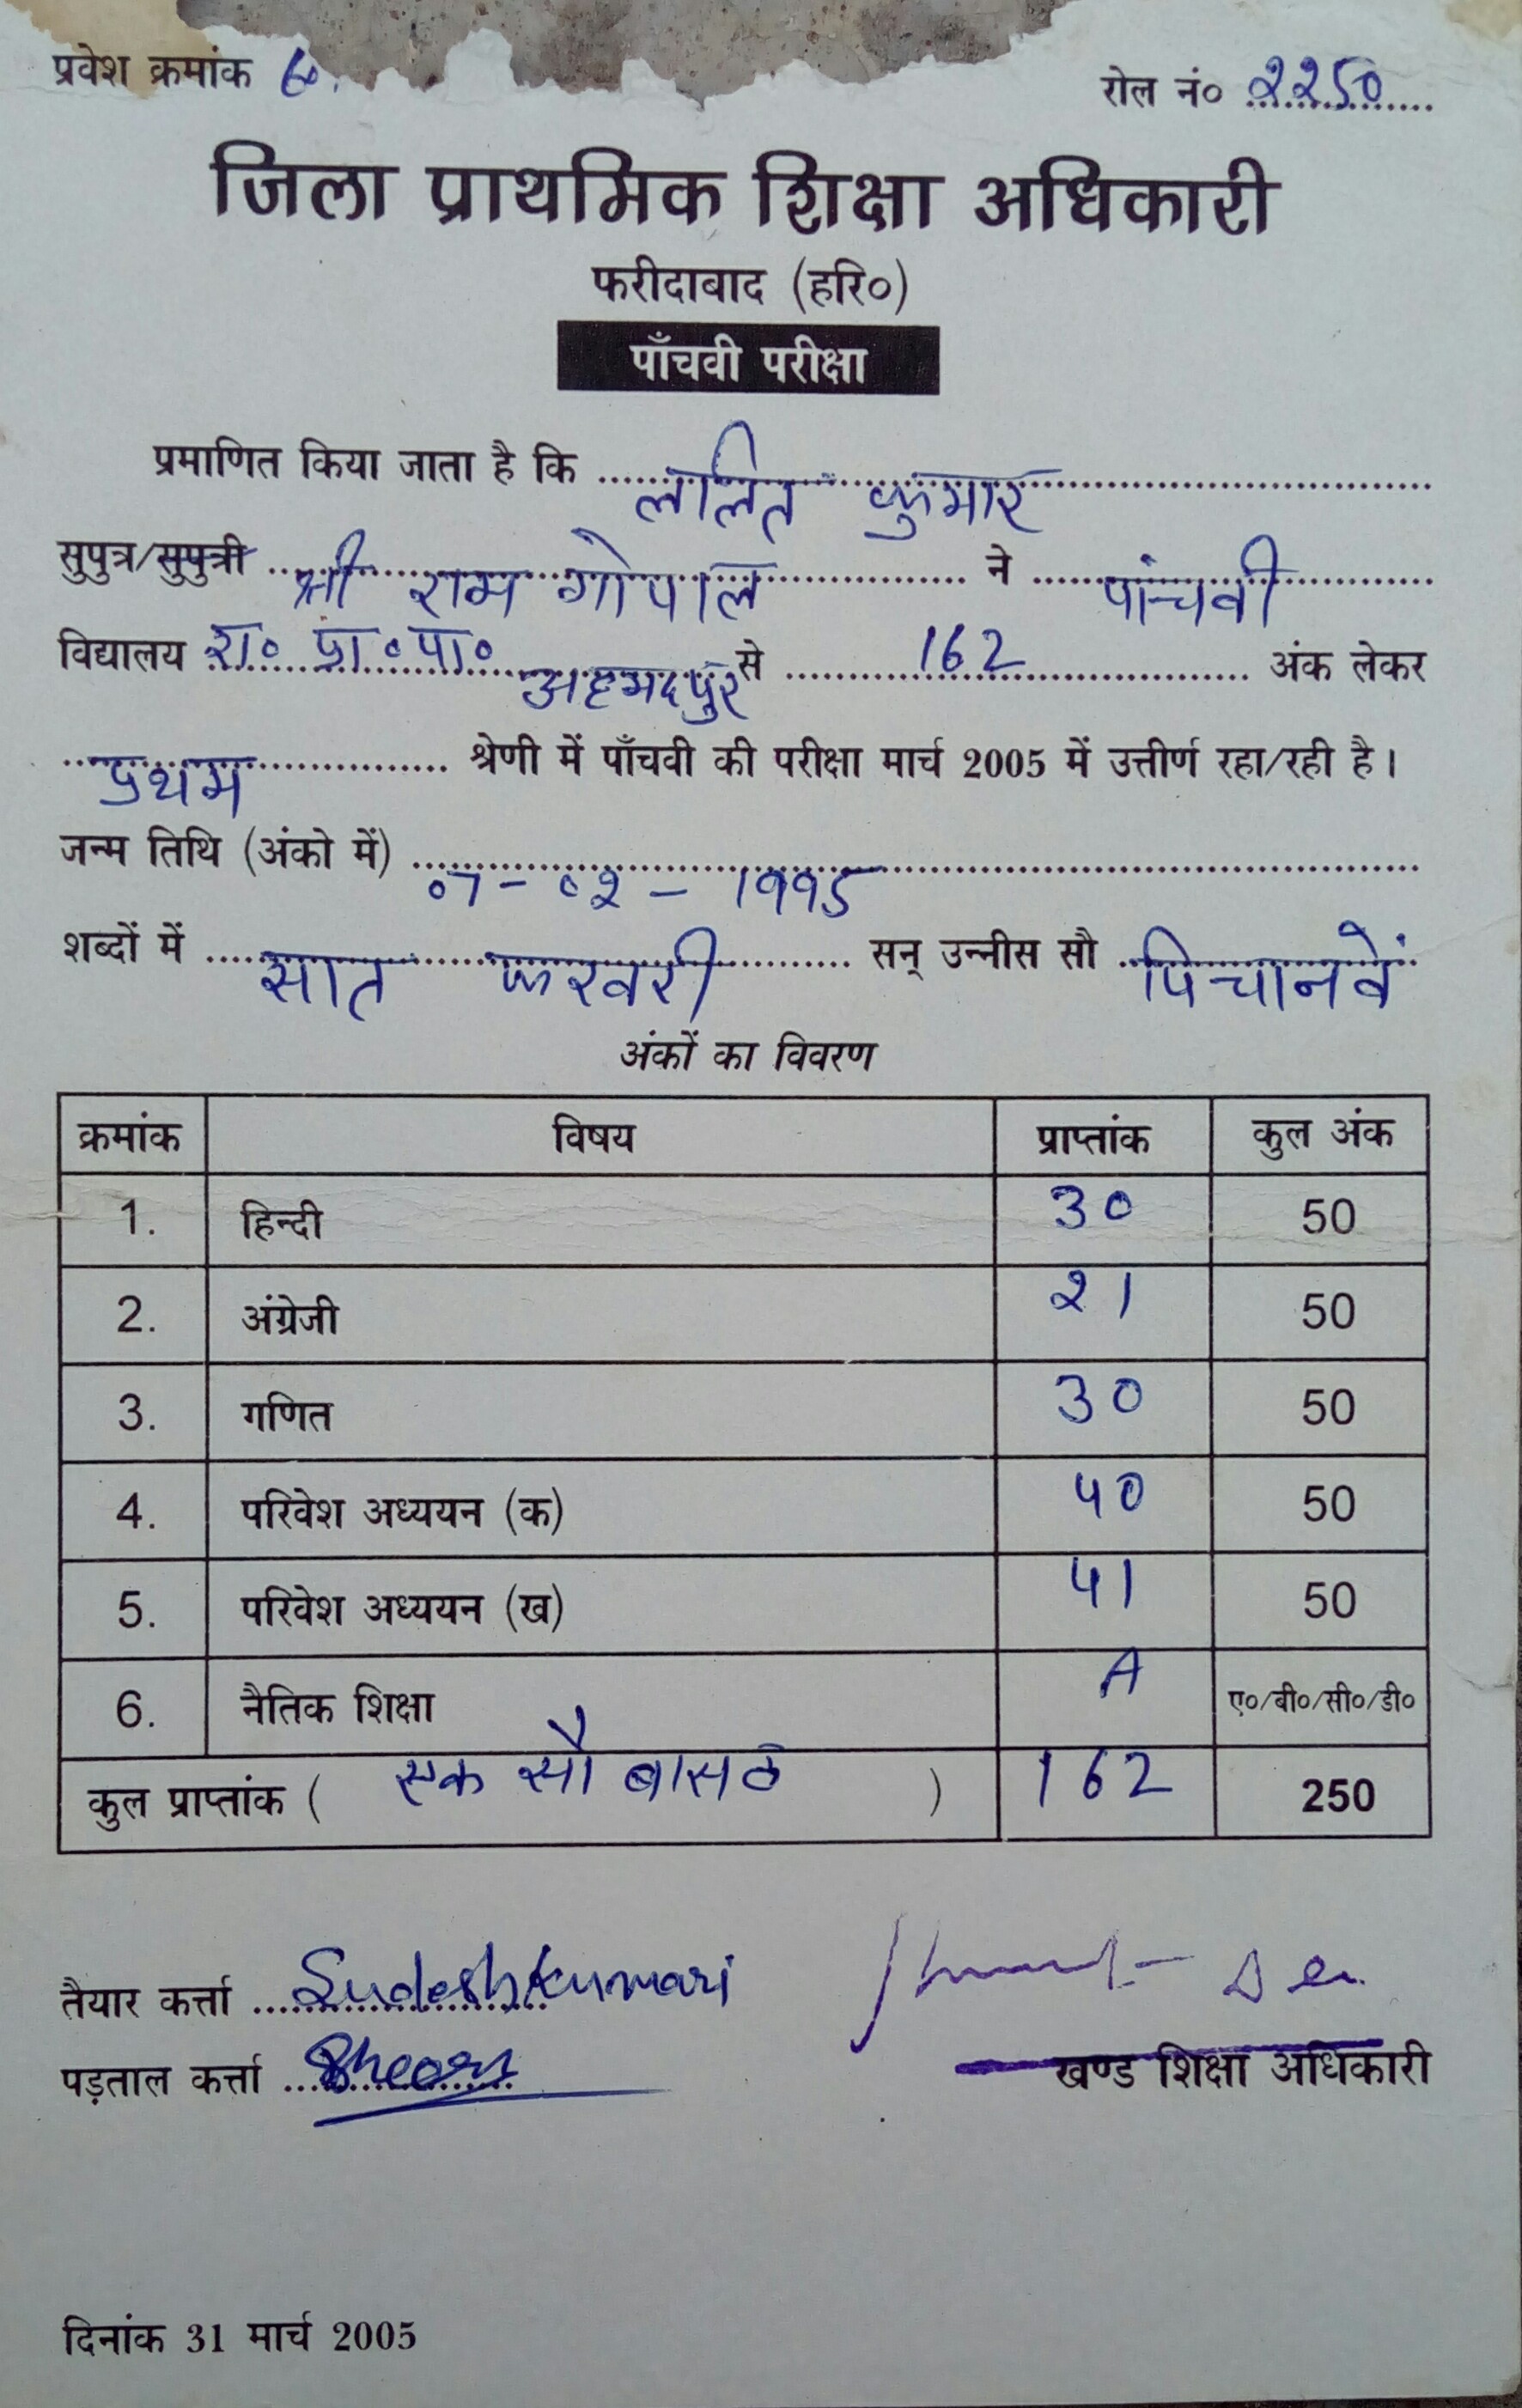 प्रवेश क्रमांक 60. रोल नं० 2250
जिला प्राथमिक शिक्षा अधिकारी
फरीदाबाद (हरि०)
पाँचवी परीक्षा
प्रमाणित किया जाता है कि ललित कुमार
सुपुत्र/सुपुत्री श्री राम गोपाल ने पांचवी
विद्यालय रा० प्रा० पा० अहमदपुर से 162 अंक लेकर
प्रथम श्रेणी में पाँचवी की परीक्षा मार्च 2005 में उत्तीर्ण रहा/रही है।
जन्म तिथि (अंको में) 07-02-1995
शब्दों में सात फरवरी सन् उन्नीस सौ पिचानवें
अंकों का विवरण
क्रमांक विषय प्राप्तांक कुल अंक
1. हिन्दी 30 50
2. अंग्रेजी 21 50
3. गणित 30 50
4. परिवेश अध्ययन (क) 40 50
5. परिवेश अध्ययन (ख) 41 50
6. नैतिक शिक्षा A ए०/बी०/सी०/डी०
कुल प्राप्तांक ( एक सौ बासठ ) 162 250
तैयार कर्त्ता Sudesh Kumari
पड़ताल कर्त्ता
खण्ड शिक्षा अधिकारी
दिनांक 31 मार्च 2005